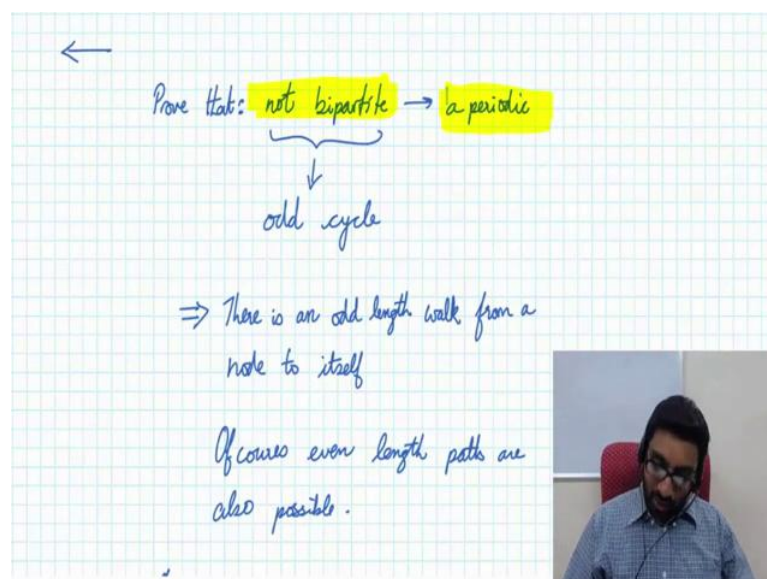 Prove that: not bipartite → aperiodic
odd cycle
⇒ There is an odd length walk from a
node to itself
Of coures even length paths are
also possible.